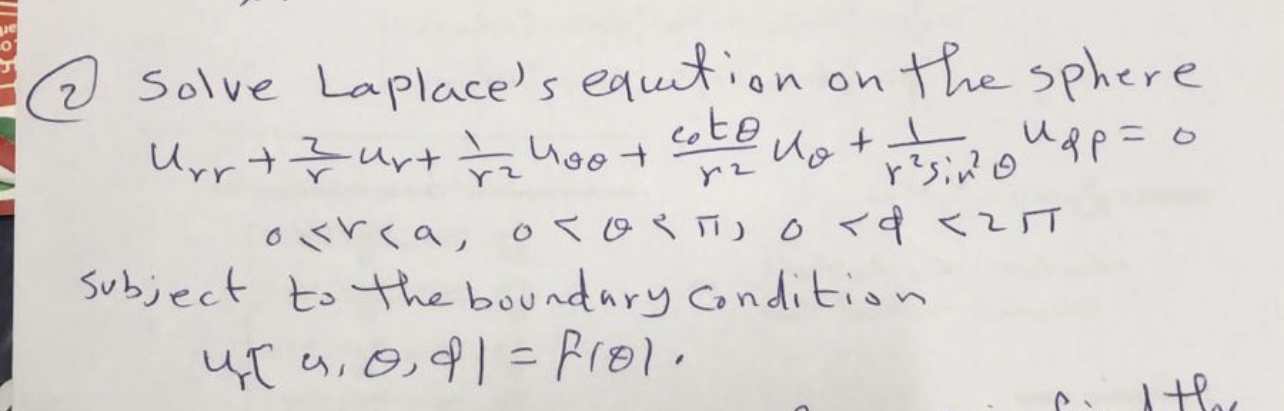 ② Solve Laplace's equation on the sphere
u_rr + 2/r u_r + 1/r² u_θθ + cotθ/r² u_θ + 1/(r² sin²θ) u_φφ = 0
0 < r < a, 0 < θ < π, 0 < φ < 2π
subject to the boundary condition
u_r(a, θ, φ) = f(θ).